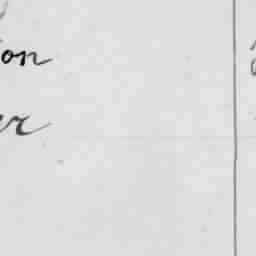 on
er